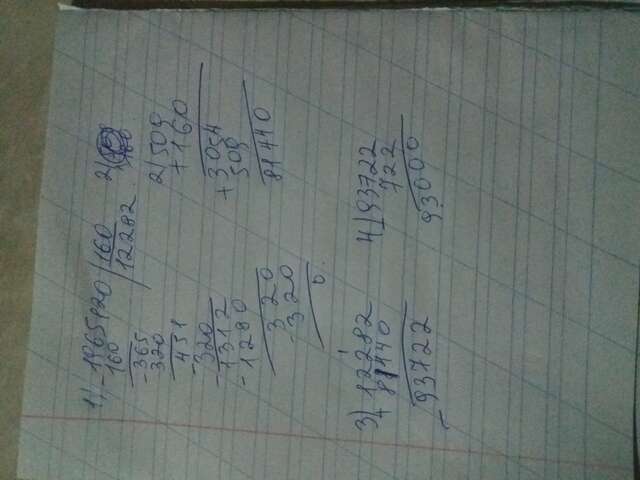 1) -1965120 | 160
160 | 12282
-365
320
-451
320
-1312
-1280
320
-320
0
2) 509
+160
+3054
509
81440
3) 12282
+81440
93722
4) -93722
722
93000